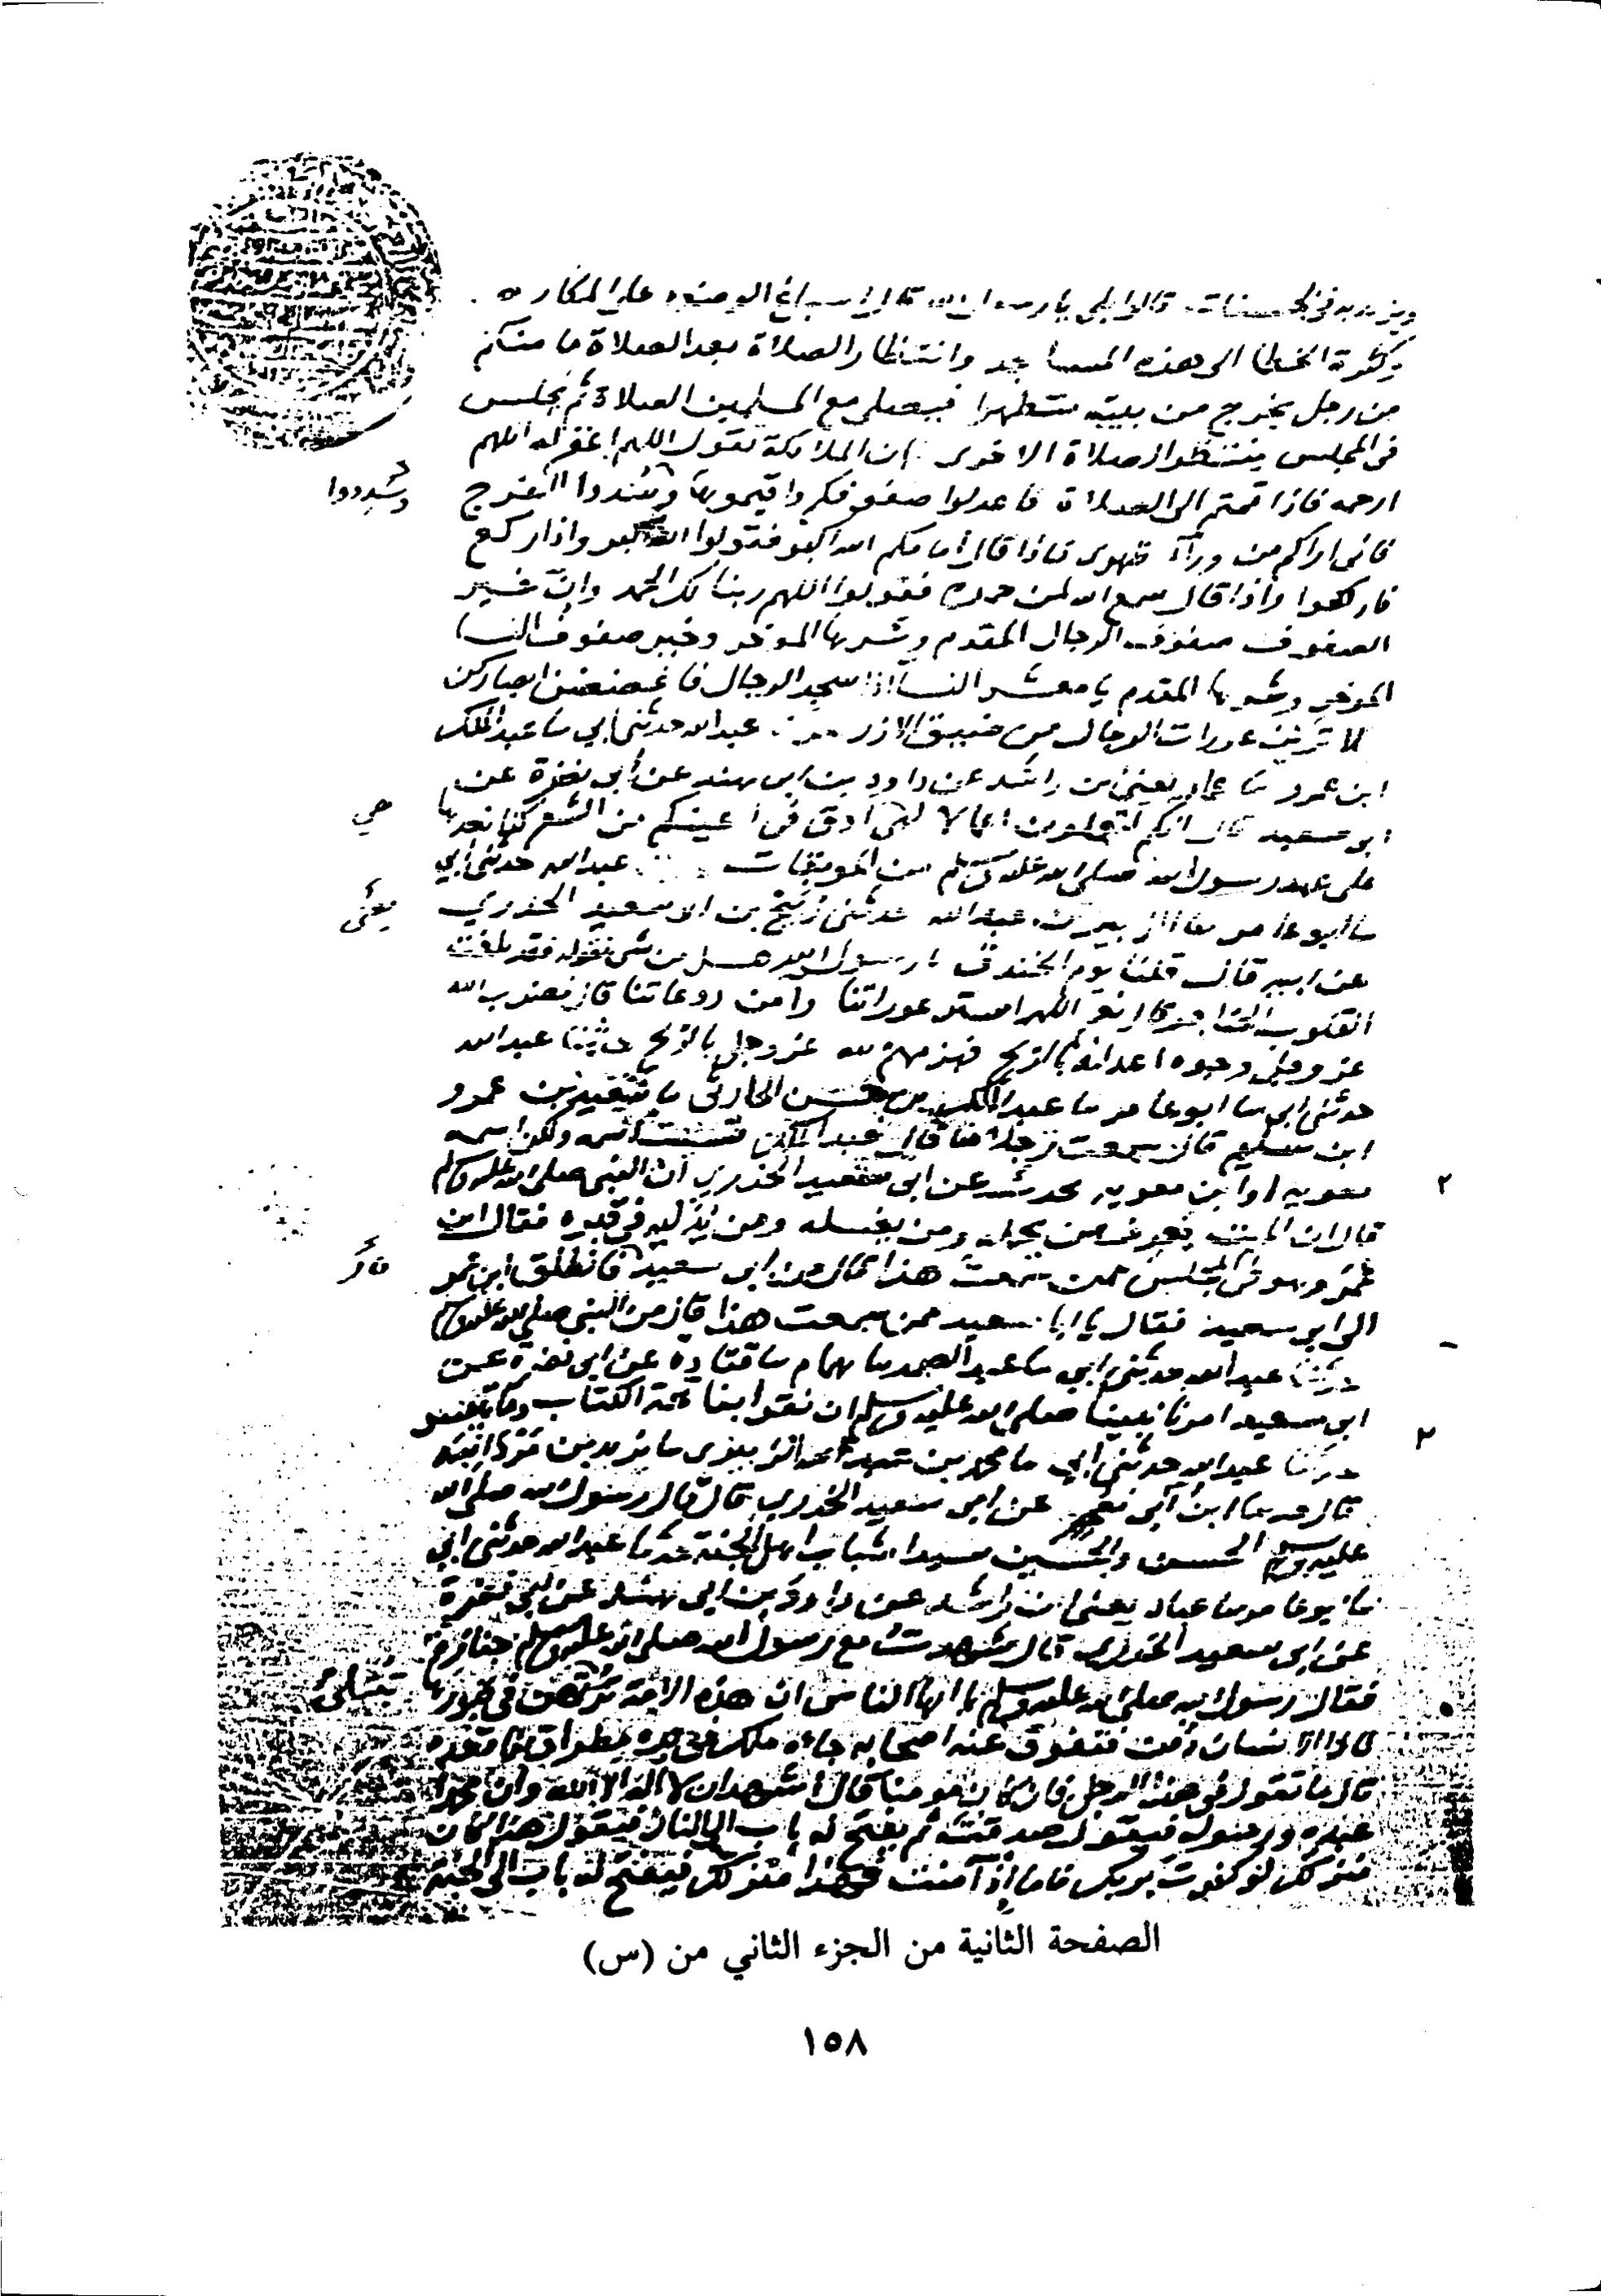 ويزيد به في الحسنات قالوا بلى يا رسول الله قال اسباغ الوضوء على المكاره
وكثرة الخطا الى هذه المساجد وانتظار الصلاة بعد الصلاة ما منكم
من رجل يخرج من بيته متطهرا فيصلى مع المسلمين الصلاة ثم يجلس
فى المجلس ينتظر الصلاة الاخرى ان الملائكة تقول اللهم اغفر له اللهم
ارحمه فاذا قمتم الى الصلاة فاعدلوا صفوفكم واقيموها وسدوا الفرج
وسددوا
فانى اراكم من وراء ظهرى فاذا قال امامكم الله اكبر فقولوا الله اكبر واذا ركع
فاركعوا واذا قال سمع الله لمن حمده فقولوا اللهم ربنا لك الحمد وان خير
الصفوف صفوف الرجال المقدم وشرها الموخر وخير صفوف النسا
الموخر وشرها المقدم يا معشر النسا اذا سجد الرجال فاغضضن ابصاركن
لا ترين عورات الرجال من ضيق الازر عبد الله حدثنى ابي سا عبد الملك
ابن عمرو سا عباد يعنى بن راشد عن داود بن ابى هند عن أبى نضرة عن
ابى سعيد قال انكم لتعملون اعمالا لهى ادق فى اعينكم من الشعر كنا نعدها
هي
على عهد رسول الله صلى الله عليه وسلم من الموبقات عبد الله حدثنى أبي
سا ابو عامر سا الزبير بن عبد الله حدثنى ربيح بن ابى سعيد الخدري
يعنى
عن ابيه قال قلنا يوم الخندق يا رسول الله هل من شى نقوله فقد بلغت
القلوب الحناجر قال نعم اللهم استر عوراتنا وآمن روعاتنا قال فضرب الله
عز وجل وجوه اعدائه بالريح فهزمهم الله عز وجل بالريح حدثنا عبد الله
حدثنى ابى سا ابو عامر سا عبد الملك بن حسن الحارثى سا سعيد بن عمرو
ابن سليم قال سمعت رجلا منا قال عبد الملك نسيت اسمه ولكن اسمه
معويه او ابن معويه يحدث عن ابى سعيد الخدري ان النبى صلى الله عليه وسلم
٢
قال ان الميت يعرف من يحمله ومن يغسله ومن يدليه فى قبره فقال ابن
عمر وهو فى المجلس ممن سمعت هذا قال من ابى سعيد فانطلق ابن عمر
الى ابى سعيد فقال يا ابا سعيد ممن سمعت هذا قال من النبى صلى الله عليه وسلم
حدثنا عبد الله حدثنى ابي سا عبد الصمد سا همام سا قتادة عن ابى نضرة عن
ابى سعيد امرنا نبينا صلى الله عليه وسلم ان نقرا بفاتحة الكتاب وما تيسر
٢
حدثنا عبد الله حدثنى ابي سا محمد بن عبد الله الزبيرى سا يزيد بن مردانبه
قال سا ابن أبى نعم عن ابى سعيد الخدري قال قال رسول الله صلى الله
عليه وسلم الحسن والحسين سيدا شباب اهل الجنة حدثنا عبد الله حدثنى ابي
سا ابو عامر سا عباد يعنى ابن راشد عن داود بن ابى هند عن ابى نضرة
عن ابى سعيد الخدرى قال شهدت مع رسول الله صلى الله عليه وسلم جنازة
فقال رسول الله صلى الله عليه وسلم يا ايها الناس ان هذه الامة تبتلى فى قبورها
تبتلى
فاذا الانسان دفن فتفرق عنه اصحابه جاءه ملك فى يده مطراق فاقعده
قال ما تقول فى هذا الرجل فان كان مومنا قال اشهد ان لا اله الا الله وان محمدا
عبده ورسوله فيقول صدقت ثم يفتح له باب الى النار فيقول هذا كان
منزلك لو كفرت بربك فاما إذ آمنت فهذا منزلك فيفتح له باب الى الجنة
الصفحة الثانية من الجزء الثاني من (س)
١٥٨